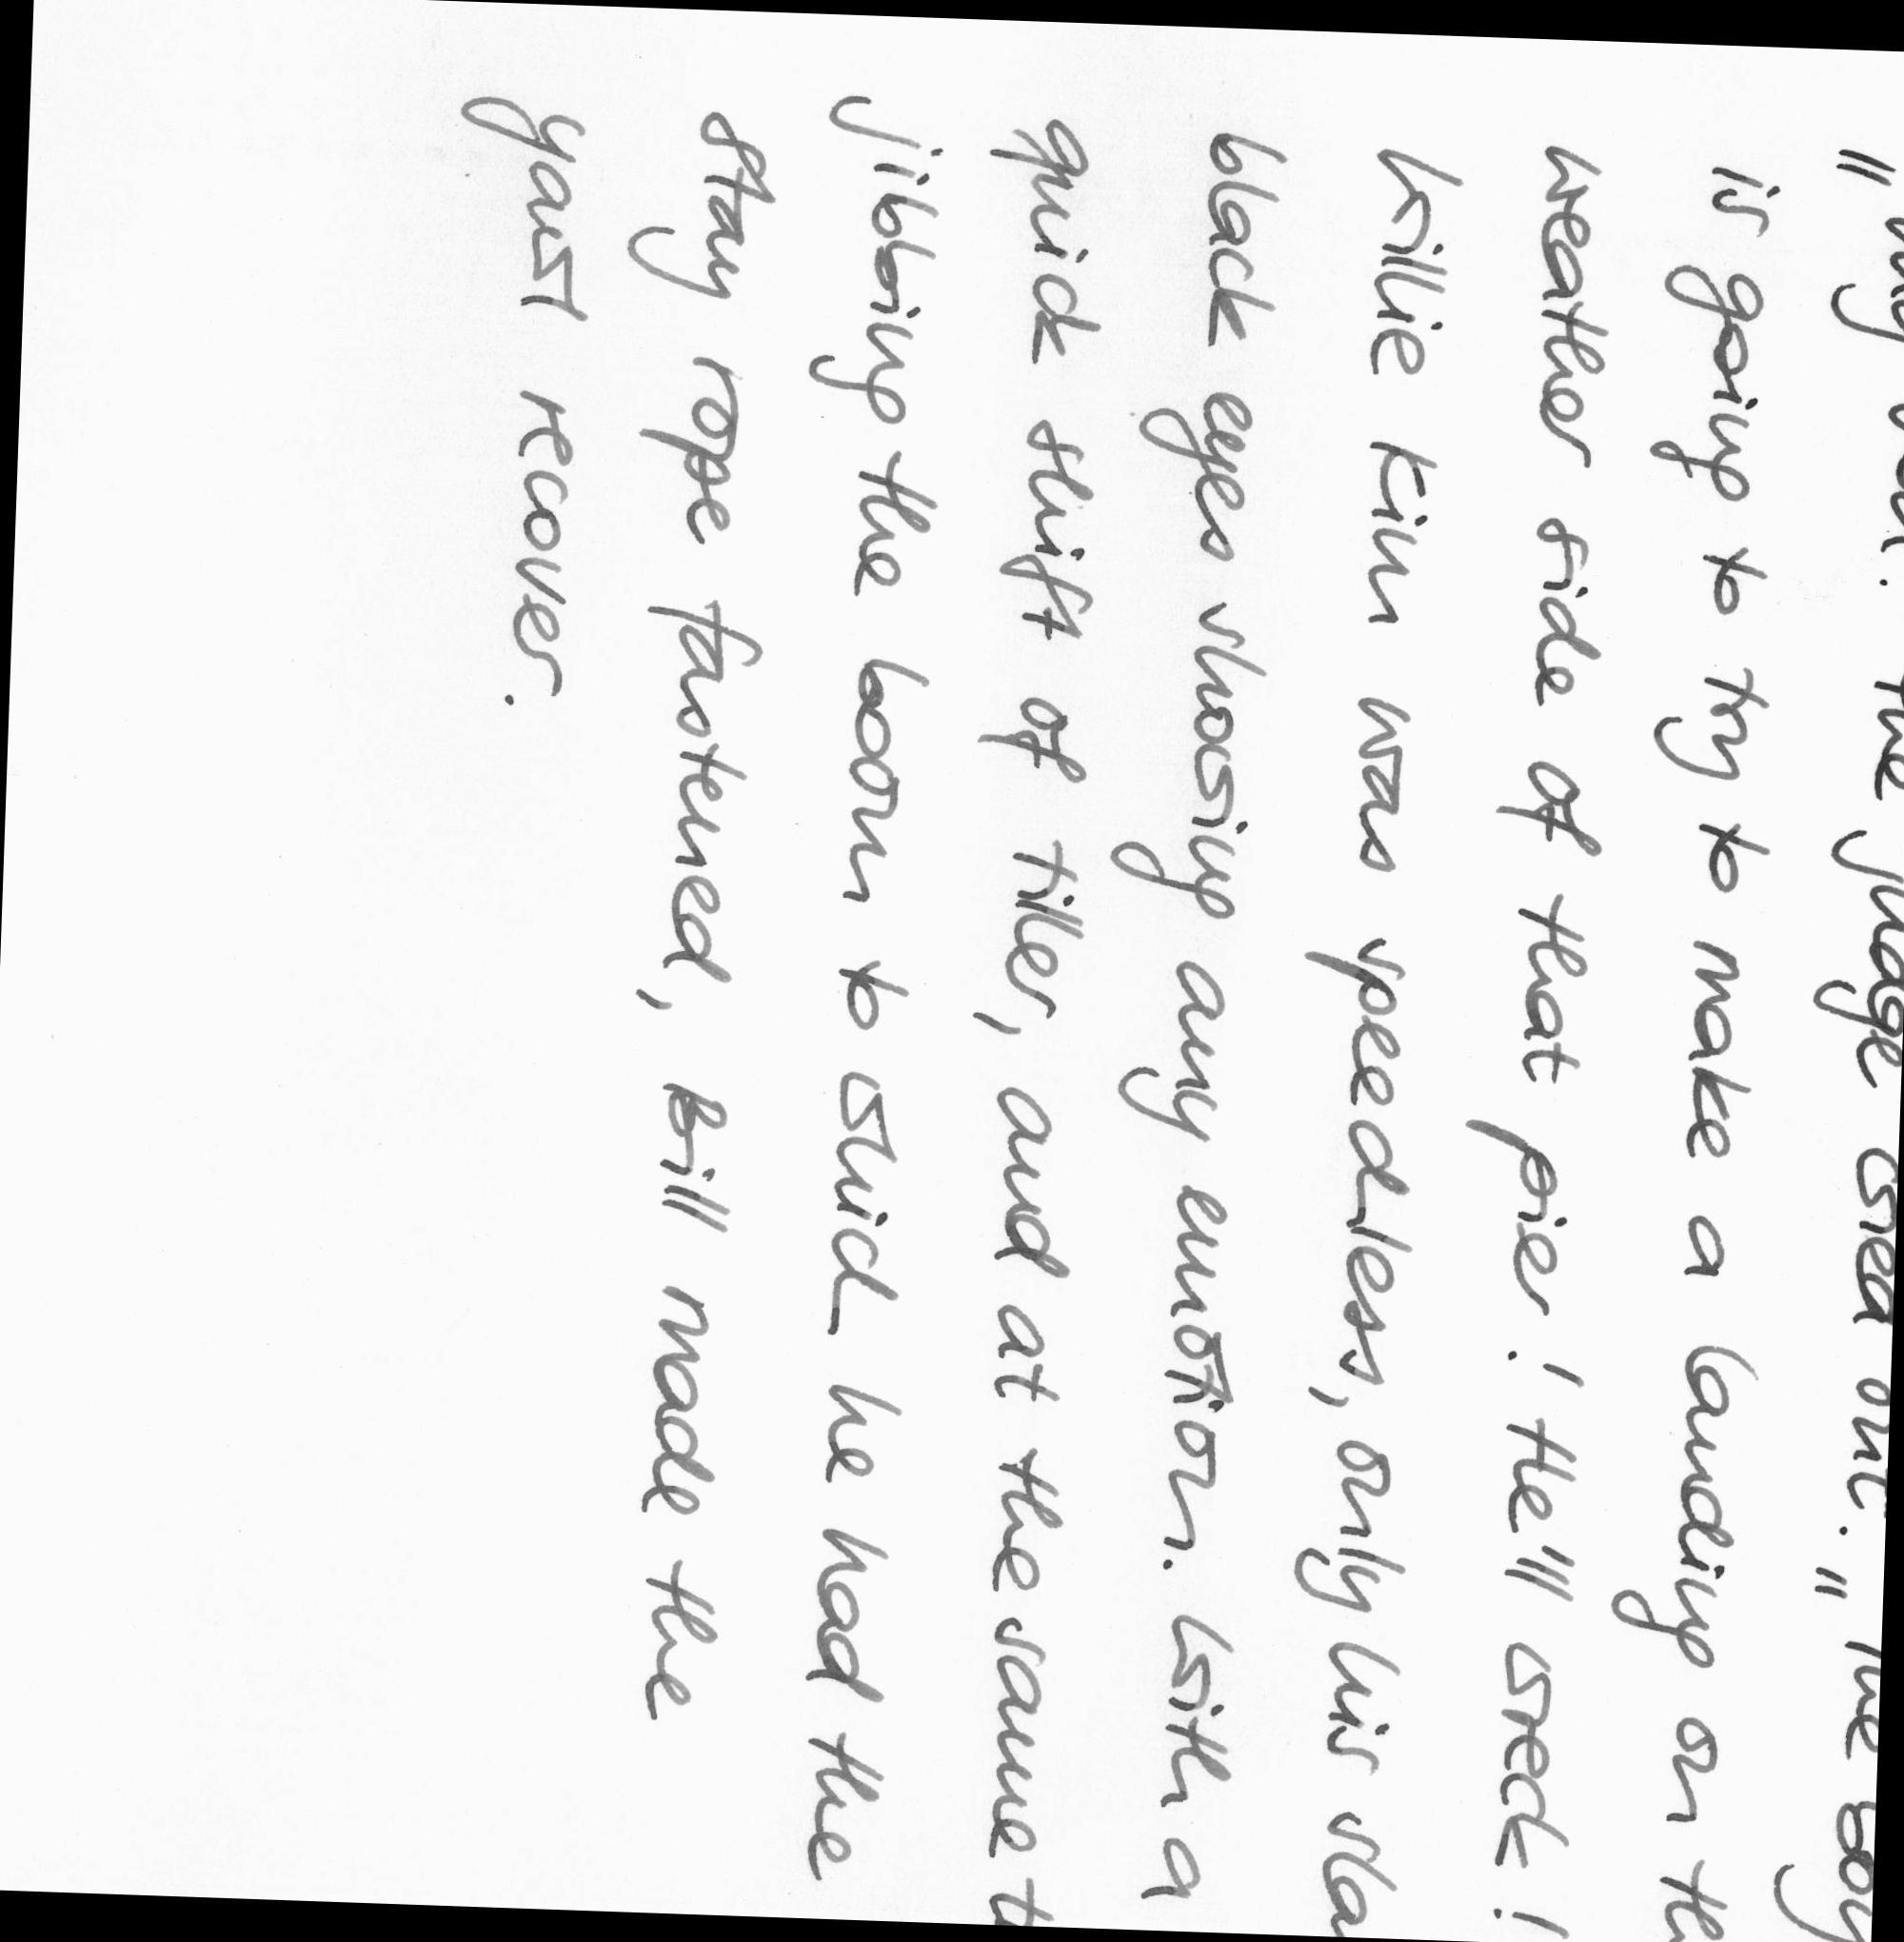 " My God! " the judge cried out. " The boy
is going to try to make a landing on th
weather side of that pier! He'll wreck!
Willie Kim was speechless, only his sla
black eyes showing any emotion. With a
quick shift of tiller, and at the same t
jibbing the boom to which he had the
stay rope fastened, Bill made the
yawl recover.